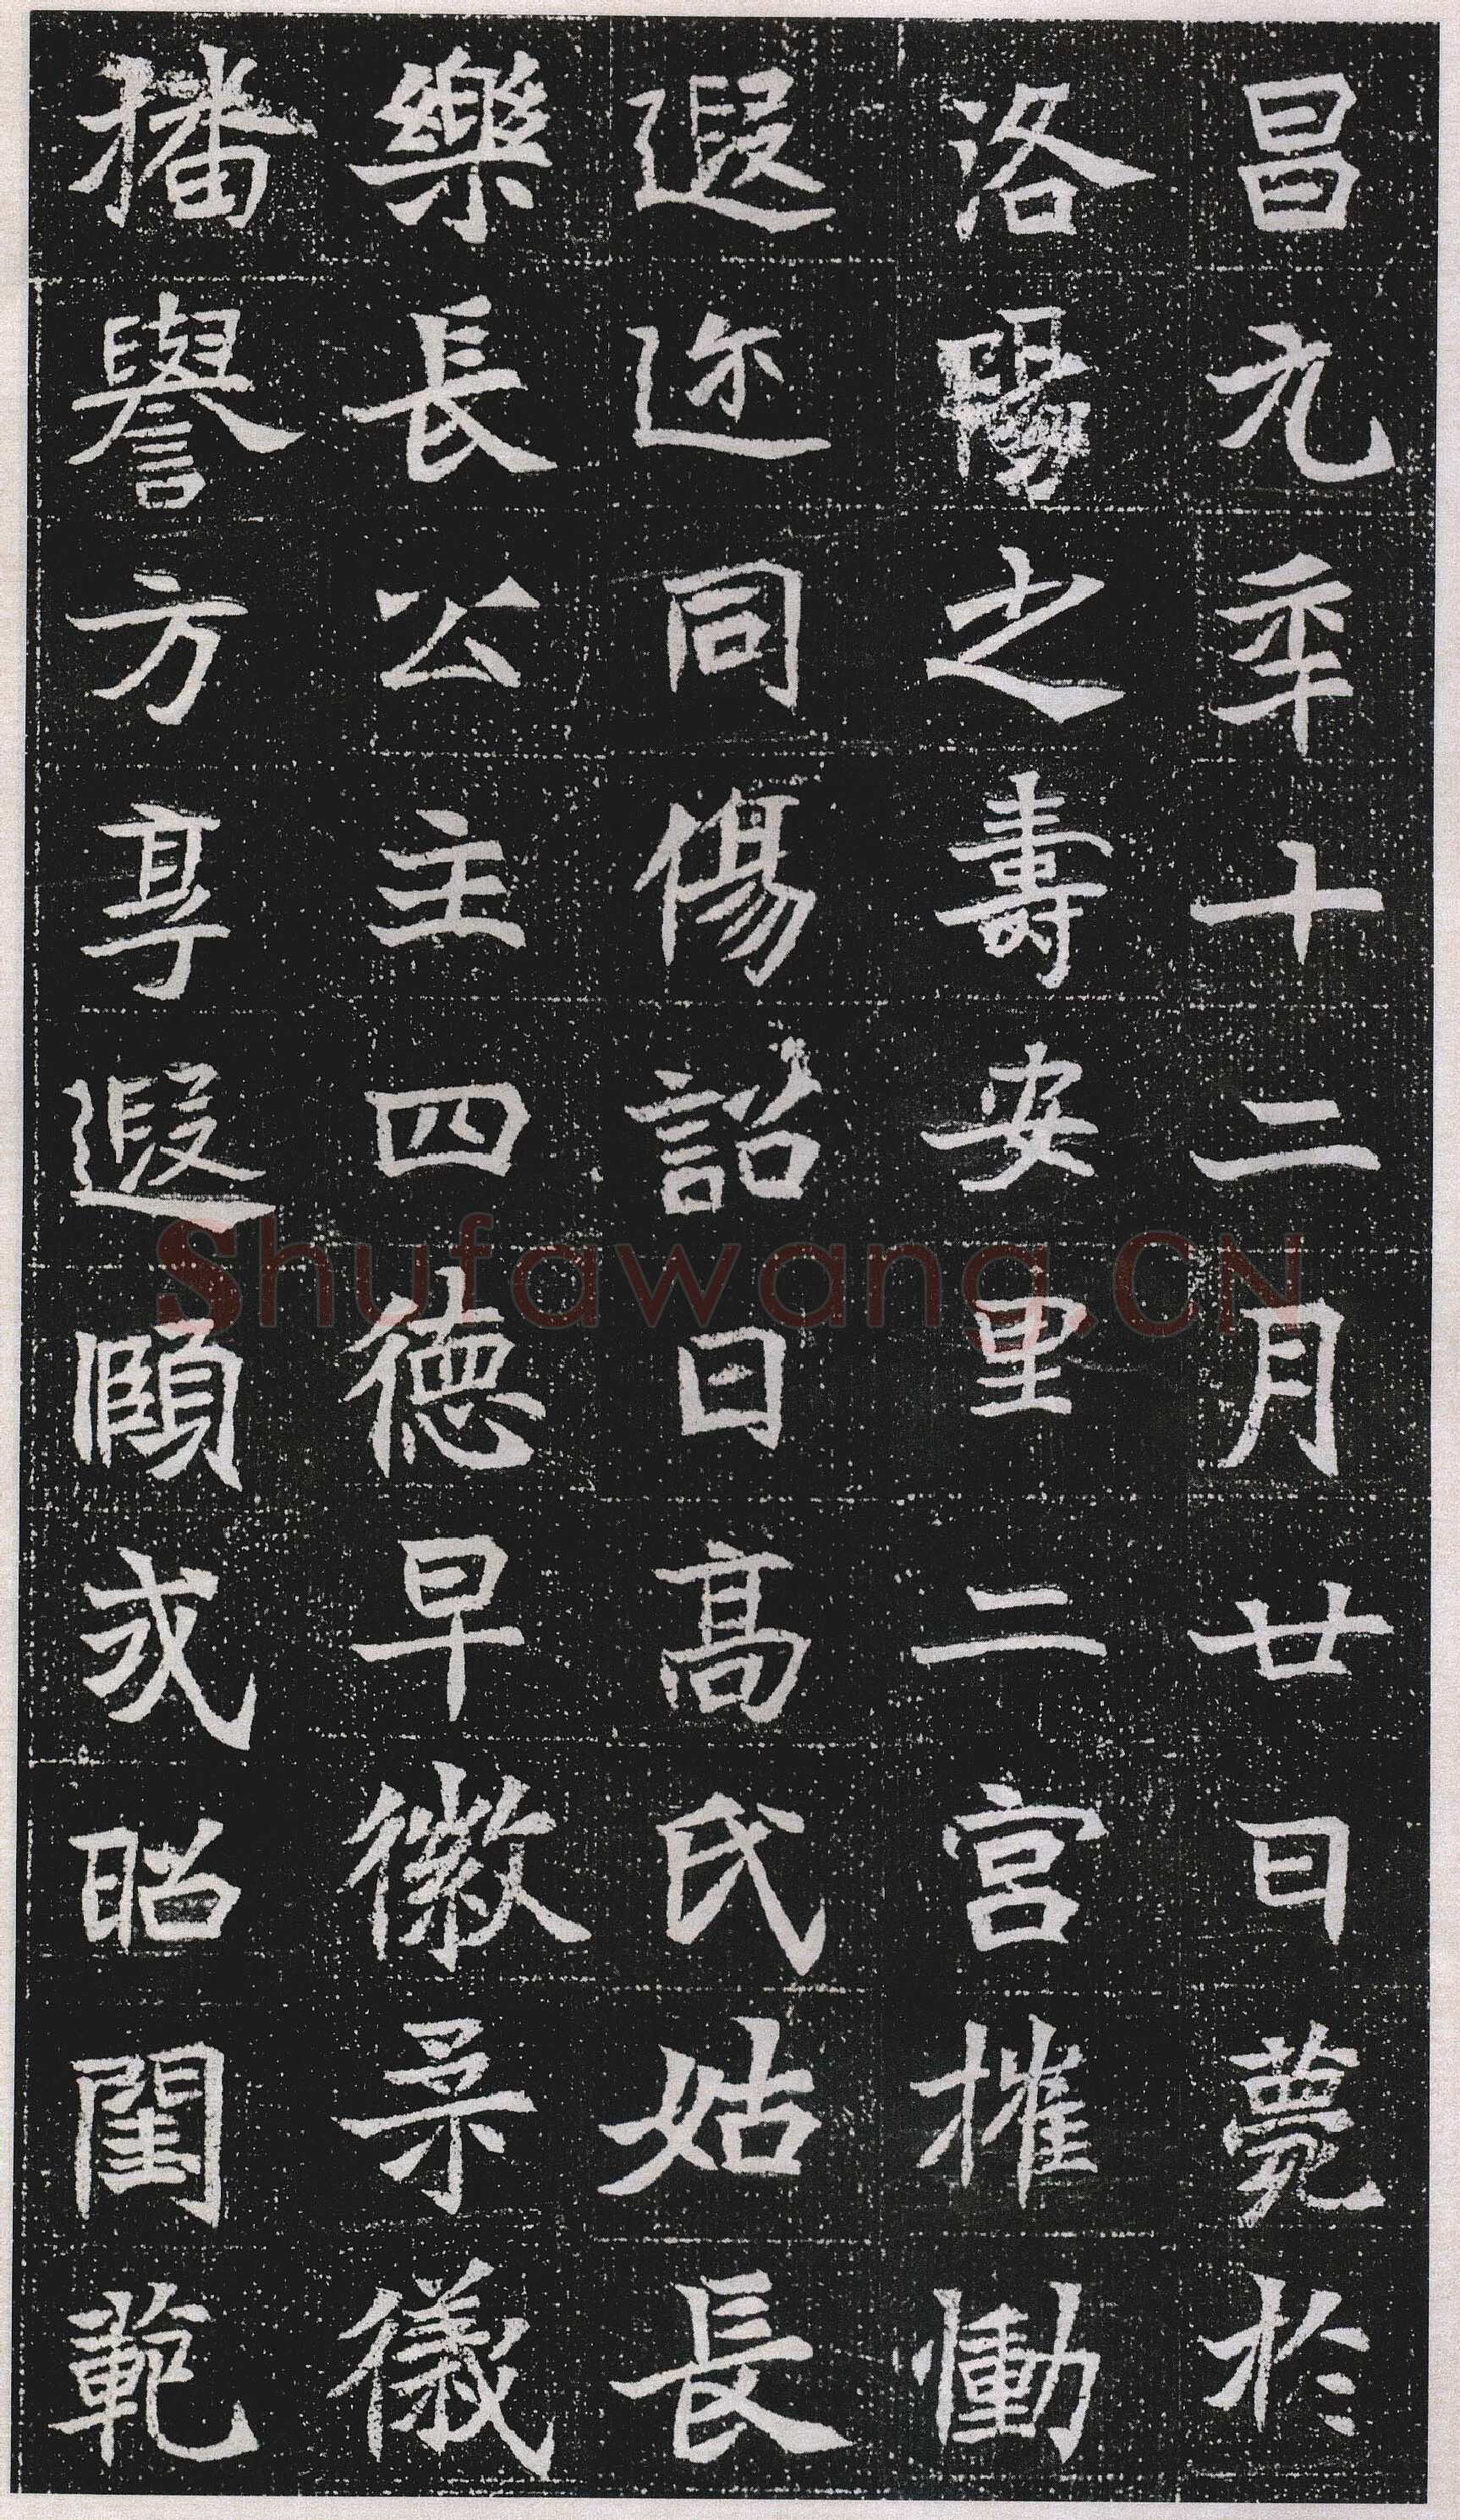 昌元年十二月廿日薨於
洛陽之壽安里二宮摧慟
遐迩同傷詔曰高氏姑長
樂長公主四德早徽柔儀
播譽方享遐頤或昭閨範
Shufawang.CN